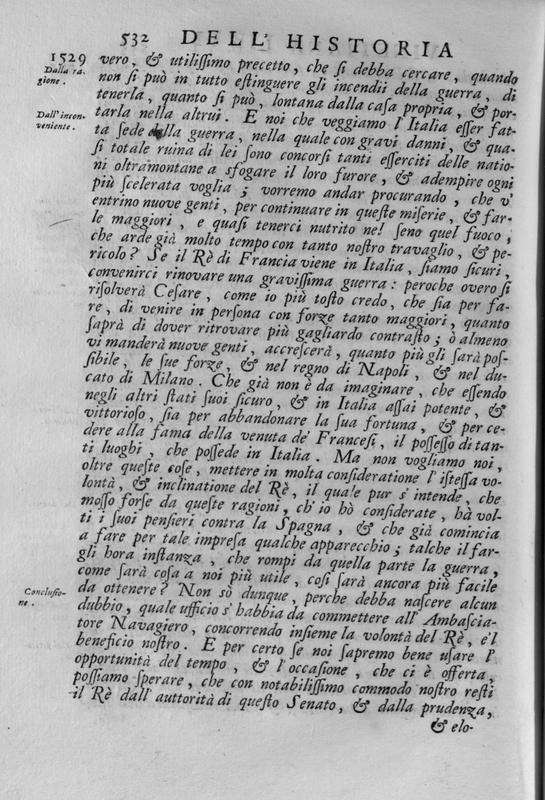 532 DELL' HISTORIA
1529
Dalla ra-
gione.
vero, & utilißimo precetto, che ſi debba cercare, quando
non ſi può in tutto eſtinguere gli incendii della guerra, di
tenerla, quanto ſi può, lontana dalla caſa propria, & por-
Dall' incon-
veniente.
tarla nella altrui. E noi che veggiamo l'Italia eſſer fat-
ta ſede della guerra, nella quale con gravi danni, & qua-
ſi totale ruina di lei ſono concorſi tanti eſſerciti delle natio-
ni oltramontane a sfogare il loro furore, & adempire ogni
più ſcelerata voglia; vorremo andar procurando, che v'
entrino nuove genti, per continuare in queſte miſerie, & far-
le maggiori, e quaſi tenerci nutrito ne' ſeno quel fuoco,
che arde già molto tempo con tanto noſtro travaglio, & pe-
ricolo? Se il Rè di Francia viene in Italia, ſiamo ſicuri,
convenirci rinovare una graviſſima guerra: peroche overo ſi
riſolverà Ceſare, come io più toſto credo, che ſia per fa-
re, di venire in perſona con forze tanto maggiori, quanto
ſaprà di dover ritrovare più gagliardo contraſto; ò almeno
vi manderà nuove genti, accreſcerà, quanto più gli ſarà poſ-
ſibile, le ſue forze, & nel regno di Napoli, & nel du-
cato di Milano. Che già non è da imaginare, che eſſendo
negli altri ſtati ſuoi ſicuro, & in Italia aſſai potente, &
vittorioſo, ſia per abbandonare la ſua fortuna, & per ce-
dere alla fama della venuta de' Franceſi, il poſſeſſo di tan-
ti luoghi, che poſſede in Italia. Ma non vogliamo noi,
oltre queſte coſe, mettere in molta conſideratione l'iſteſſa vo-
lontà, & inclinatione del Rè, il quale pur s'intende, che
moſſo forſe da queſte ragioni, ch' io hò conſiderate, hà vol-
ti i ſuoi penſieri contra la Spagna, & che già comincia
a fare per tale impreſa qualche apparecchio; talche il far-
gli hora inſtanza, che rompi da quella parte la guerra,
come ſarà coſa a noi più utile, coſi ſarà ancora più facile
Concluſio-
ne.
da ottenere? Non sò dunque, perche debba naſcere alcun
dubbio, quale ufficio s'habbia da commettere all' Ambaſcia-
tore Navagiero, concorrendo inſieme la volontà del Rè, e'l
beneficio noſtro. E per certo ſe noi ſapremo bene uſare l'
opportunità del tempo, & l'occaſione, che ci è offerta,
poſſiamo ſperare, che con notabilißimo commodo noſtro reſti
il Rè dall' auttorità di queſto Senato, & dalla prudenza,
& elo-